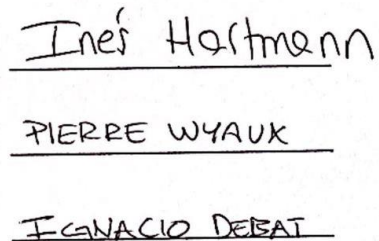 Inés Hartmann
PIERRE WYAUX
IGNACIO DEBAT